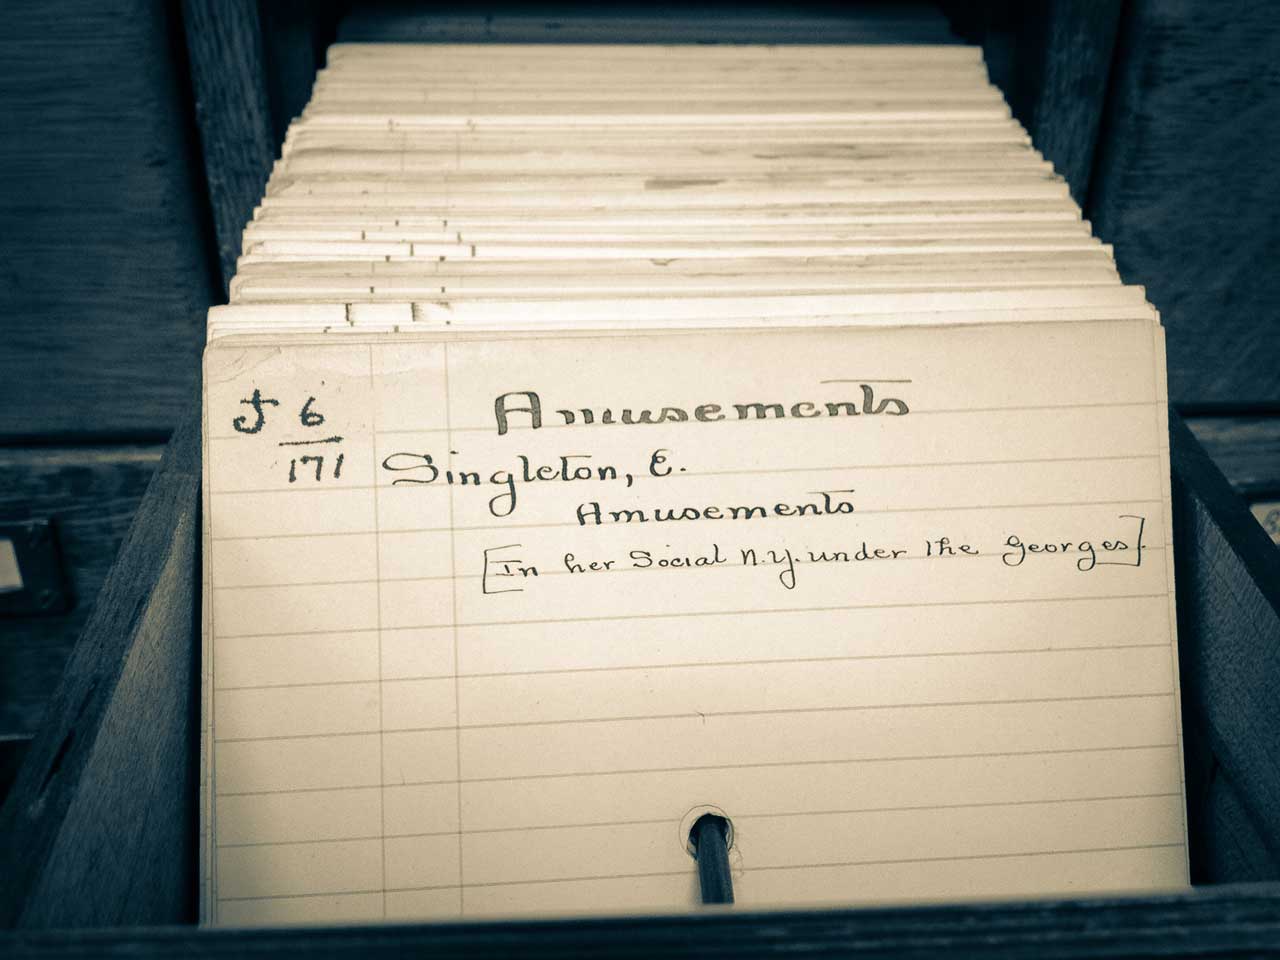 J 6 Amusements
171 Singleton, E.
Amusements
[In her Social N.Y. under the Georges].